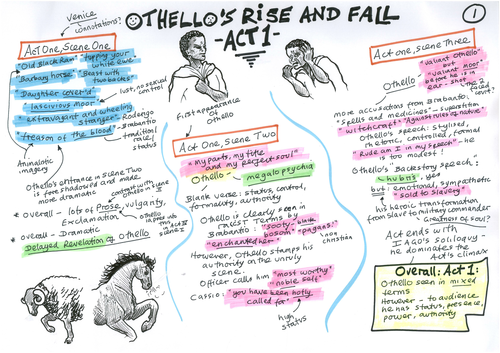 Venice
connotations?
OTHELLO'S RISE AND FALL
-ACT 1-
1
Act One, Scene One
"Old Black Ram" "tupping your
white ewe"
"Barbary horse" "Beast with
two backs"
Daughter cover'd"
lust, no sexual
control
lascivious moor"
"extravagant and wheeling
Stranger" - Roderigo
"treason of the blood" - Brabantio
traditional
role/
status
Animalistic
imagery
Othello's entrance in Scene Two
is foreshadowed and made
more dramatic
contrast with
in Scene
* Overall - lots of Prose, vulgarity,
Exclamation
Othello
verse
in Act I
Scene 2
* Overall - Dramatic
Delayed Revelation of Othello
First appearance
of
Othello
Act One, Scene Two
"My parts, my title
and my perfect soul"
Othello
megalopsychia
Blank verse: status, control,
formality, authority
Othello is clearly seen in
racist terms by
Brabantio: "sooty - black
bosom" "pagans"
"enchanted her"
non
christian
However, Othello stamps his
authority on the unruly
scene.
Officer calls him "most worthy"
"noble self"
Cassio: "you have been hotly
called for"
high
status
Act one, scene Three
Othello
"valiant Othello"
but
"valiant Moor"
before he is in
ear-shot
2 faced
court?
more accusations from Brabantio:
"Spells and medicines" - superstition
witchcraft" "Against rules of nature"
Othello's speech: stylised,
rhetoric, controlled, formal
"Rude am I in my speech" - he
is too modest!
Othello's Backstory speech:
- hubris, yes
but: emotional, sympathetic
"sold to slavery"
his heroic transformation
from Slave to Military commander
Greatness of soul?
Act ends with
IAGO'S soliloquy -
he dominates the
Act's climax
Overall: Act 1:
Othello seen in mixed
terms
However - to audience
he has status, presence,
power, authority